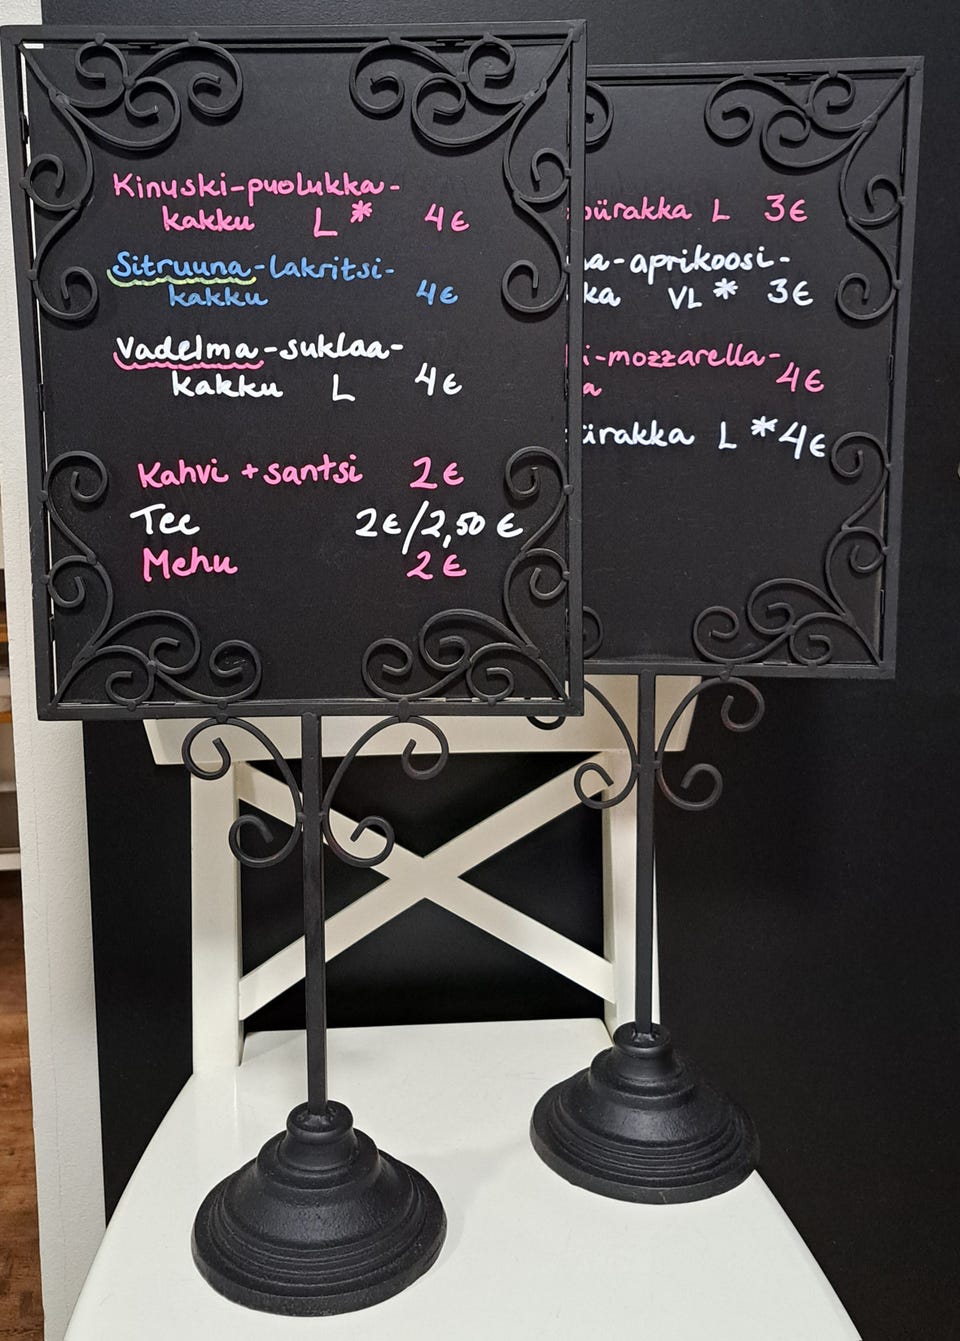 Kinuski-puolukka-
kakku L * 4€
Sitruuna-lakritsi-
kakku 4€
Vadelma-suklaa-
kakku L 4€
Kahvi + santsi 2€
Tee 2€/2,50 €
Mehu 2€
L 3€
-aprikoosi-
VL * 3€
-mozzarella-
4€
L * 4€